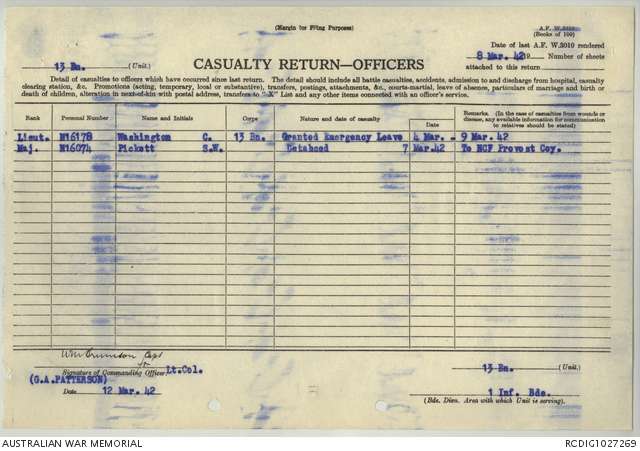 (Margin for Filing Purposes)
A.F. W.3010
(Books of 100)
Date of last A.F. W.3010 rendered
13 Bn. (Unit.)
8 Mar. 42 19 Number of sheets
CASUALTY RETURN—OFFICERS
attached to this return
Detail of casualties to officers which have occurred since last return. The detail should include all battle casualties, accidents, admission to and discharge from hospital, casualty
clearing station, &c. Promotions (acting, temporary, local or substantive), transfers, postings, attachments, &c., courts-martial, leave of absence, particulars of marriage and birth or
death of children, alteration in next-of-kin with postal address, transfers to "X" List and any other items connected with an officer's service.
Rank Personal Number Name and Initials Corps Nature and date of casualty Date Remarks. (In the case of casualties from wounds or disease, any available information for communication to relatives should be stated)
Lieut. N16178 Washington C. 13 Bn. Granted Emergency Leave 4 Mar. - 9 Mar. 42
Maj. N16074 Pickett S.W. Detached 7 Mar.42 To NCF Provost Coy.
Capt
for
Lt.Col.
Signature of Commanding Officer
13 Bn. (Unit.)
(G.A.PATTERSON)
Date 12 Mar. 42
1 Inf. Bde.
(Bde. Divn. Area with which Unit is serving).
AUSTRALIAN WAR MEMORIAL
RCDIG1027269